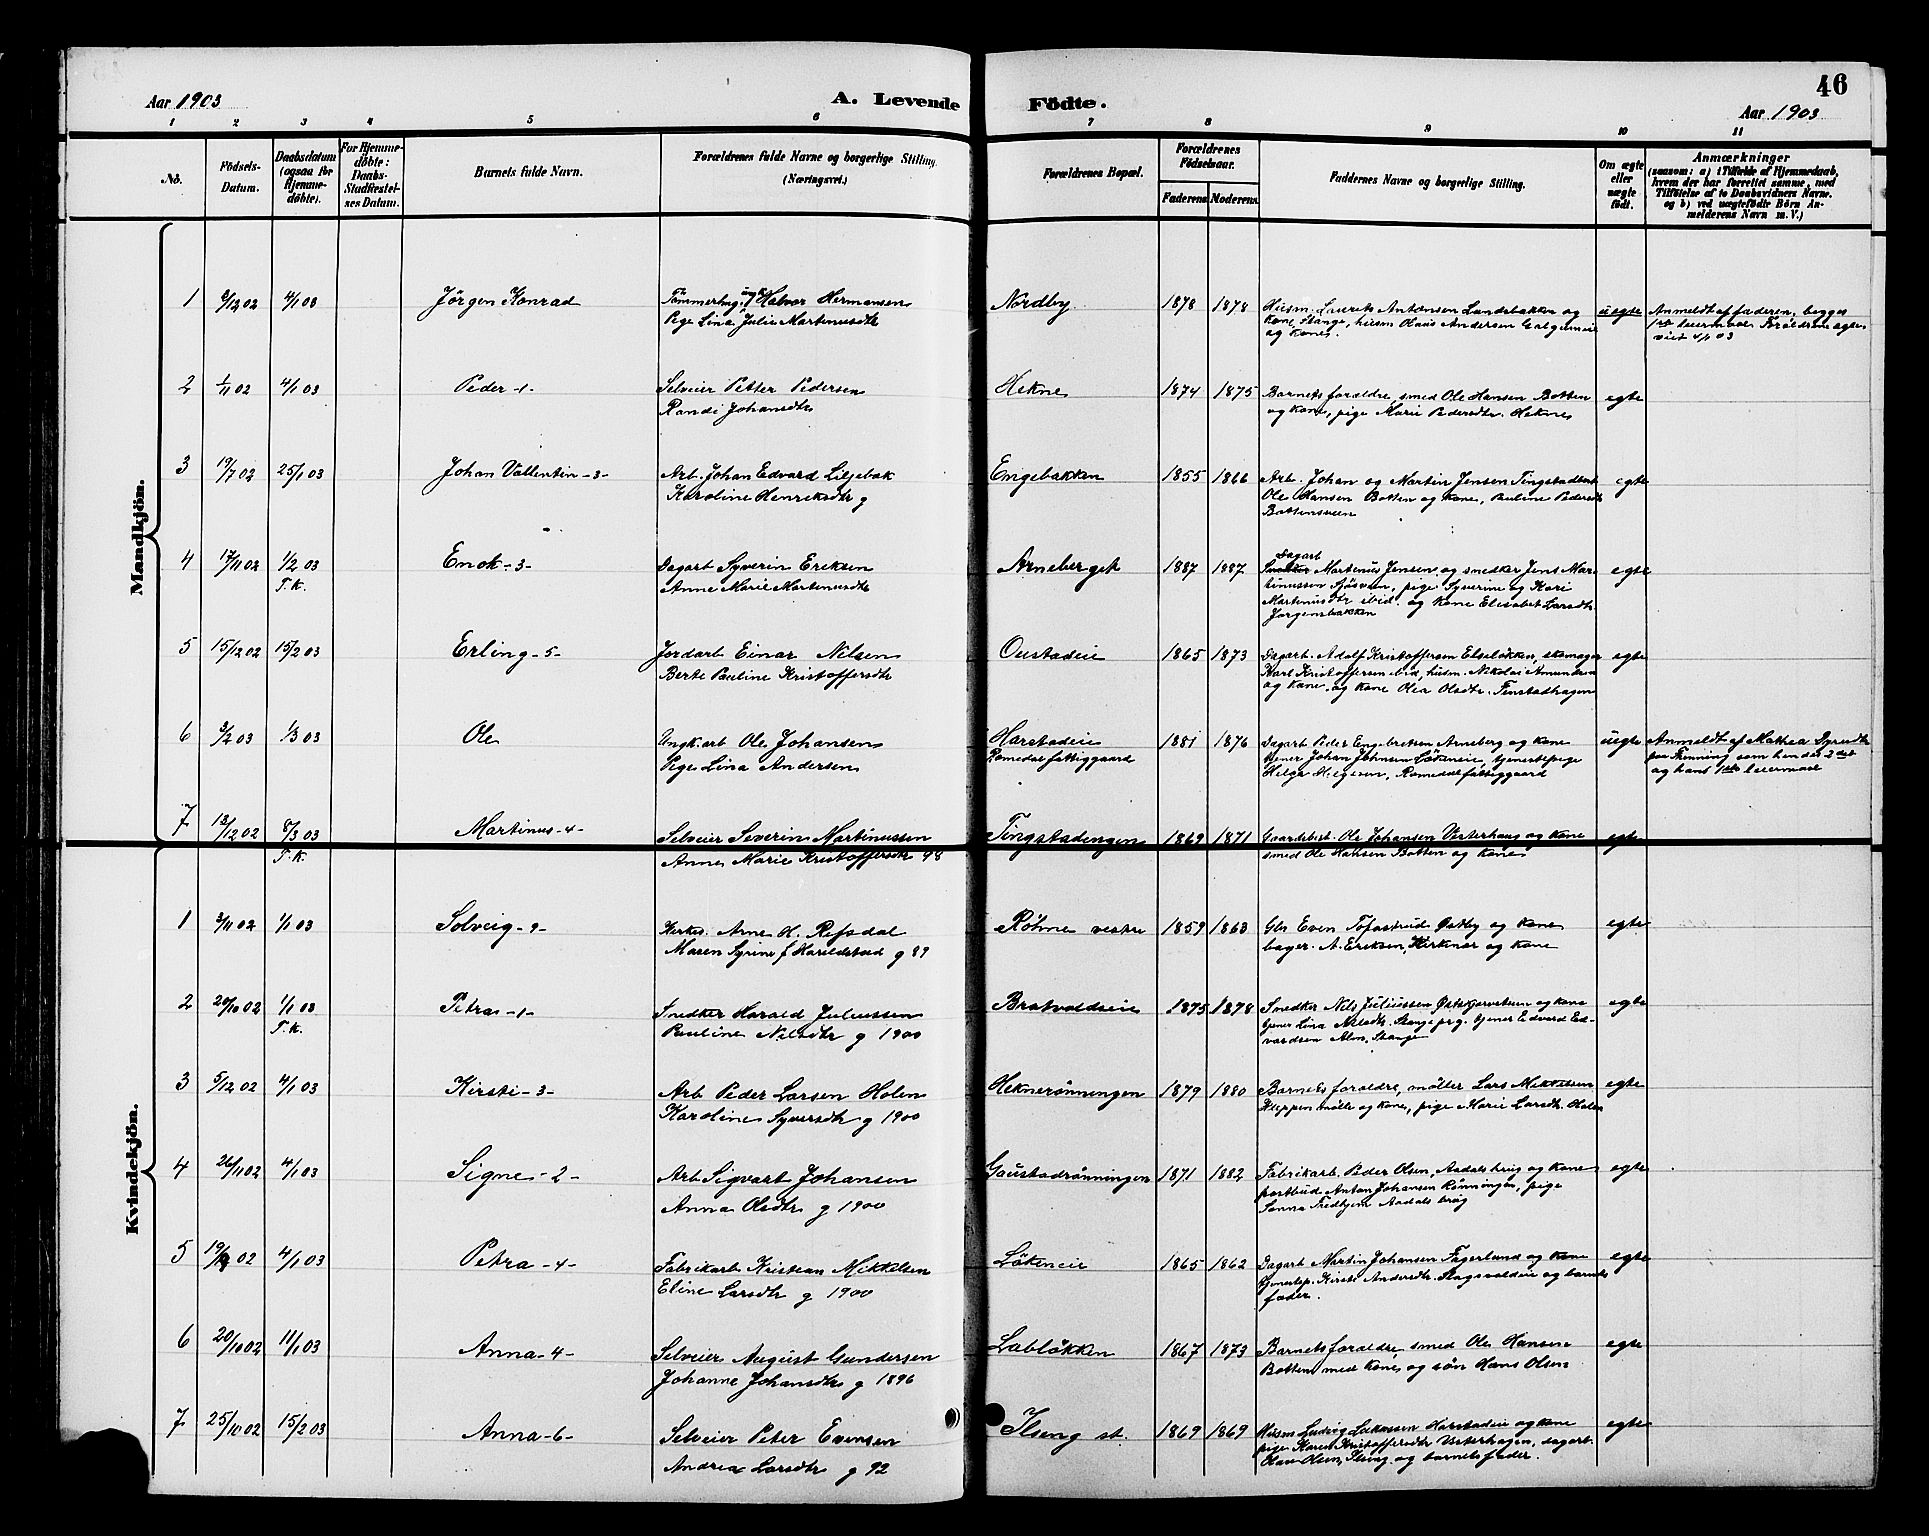 46
Aar 1903
A. Levende Födte.
Aar 1903
1 2 3 4 5 6 7 8 9 10 11
No.
Födsels-Datum.
Daabsdatum (ogsaa for Hjemme-døbte).
For Hjemme-døbte: Daabs-Stadfæstel-ses Datum.
Barnets fulde Navn.
Forældrenes fulde Navne og borgerlige Stilling. (Næringsvei.)
Forældrenes Bopæl.
Forældrenes Födselsaar.
Faderens Moderens
Faddernes Navne og borgerlige Stilling.
Om ægte eller uægte født.
Anmærkninger
(saasom: a) i Tilfælde af Hjemmedaab, hvem der har forrettet samme, med Tilföielse af to Daabsvidners Navne, og b) ved uægtefödte Börn An-melderens Navn m. V.)
Mandkjön.
1 8/12 02 4/1 03 Jörgen Konrad
Tömmerhug. ungk Halvor Hermansen
Pige Lina Julie Martinusdtr
Nordby 1878 1878
Husm. Laurits Antonsen Lundsbakken og
kone Stange, husm Hans Andersen
og kone
uegte
Anmeldt af faderen, begges
1ste leiermaal Forældrene egte
viet 4/1 03
2 1/11 02 4/1 03 Peder -1-
Selveier Petter Pedersen
Randi Johansdtr
Hekne 1874 1875
Barnets forældre, smed Ole Hansen Botten
og kone, pige Marie Pedersdtr. Hekne
egte
3 19/7 02 25/1 03 Johan Vallentin -3-
Arb. Johan Edvard Liljebak
Karoline Henriksdtr g
Engebakken 1855 1866
Arb. Johan og Martin Jensen
Ole Hansen Botten og kone, Pauline Pedersdtr
Bottensveen
egte
4 17/11 02 1/2 03 T.K. Enok -3-
Dagarb Syverin Eriksen
Anne Marie Martinusdtr
Arneberget 1887 1887
Dagarb
Martinus Jensen og snedker Jens Mar-
tinussen pige Syverine og Kari
Martinusdtr ibid. og kone Elisabet Larsdtr.
Jørgensbakken
egte
5 15/12 02 15/2 03 Erling -5-
Jordarb Einar Nilsen
Berte Pauline Kristoffersdtr
Oustadeie 1865 1873
Dagarb. Adolf Kristoffersen skomager
Karl Kristoffersen ibid, husm. Nikolai Amundsen
og kone, og kone Olea Olsdtr. Finstadhagen
egte
6 3/2 03 1/3 03 Ole
Ungk. arb Ole Johansen
Pige Lina Andersen
Harstadeie
Romedal fattiggaard
1881 1876
Dagarb Peder Engebretsen Arneberg og kone
tjener Johan Johnsen Løkeneie, tjenestepige
Helga Helgesen, Romedal fattiggaard
uegte
Anmeldt af Mathea
paa Finning som hendes 2det
og hans 1ste leiermaal
7 13/12 02 8/3 03 T.K. Martinus -4-
Selveier Severin Martinussen
Anne Marie Kristoffersdtr 98
Tingstadengen 1869 1871
Gaardsbest. Ole Johansen Vesterhaug og kone
smed Ole Hansen Botten og kone
egte
Kvindekjön.
1 3/11 02 1/1 03 Solveig -9-
Kirkes. Arne H. Refsdal
Maren Syrine f Harildstad g 89
Röhne vestre 1859 1863
Gbr Even Tofastrud Østby og kone
bager. A. Eriksen, Kirkenær og kone
egte
2 20/10 02 1/1 03 T.K. Petra -1-
Snedker Harald Juliussen
Pauline Nilsdtr g 1900
Bratvoldseie 1875 1878
Snedker Nils Juliussen og kone
tjener Lina Nilsdtr. Stange prg. tjener Edvard Ed-
vardsen Alm, Stange
egte
3 5/12 02 4/1 03 Kirsti -3-
Arb Peder Larsen Holen
Karoline Syversdtr g 1900
Heknerønningen 1879 1880
Barnets forældre, møller Lars Mikkelsen
Kleppen mølle og kone, pige Marie Larsdtr. Holen
egte
4 26/11 02 4/1 03 Signe -2-
Arb Sigvart Johansen
Anna Olsdtr g 1900
Gaustadrønningen 1871 1882
Fabrikarb. Peder Olsen, Aadals brug og kone
postbud Anton Johansen Rønningen, pige
Sanna Fredhjem Aadals brug
egte
5 4/1 03 Petra -4-
Fabrikarb Kristian Mikkelsen
Eline Larsdtr g 1900
Løkeneie 1865 1862
Dagarb Martin Johansen Fagerlund og kone
tjenestep. Kirsti Andersdtr. og barnets
fader.
egte
6 20/10 02 11/1 03 Anna -4-
Selveier August Gundersen
Johanne Johansdtr g 1896
Labløkken 1867 1873
Barnets forældre, smed Ole Hansen
Botten med kone, og søn Hans Olsen
egte
7 25/10 02 15/2 03 Anna -6-
Selveier Peter Evensen
Andrea Larsdtr g 92
Ilseng st. 1869 1869
Husm Ludvig Harstadeie og kone
pige Karen Kristoffersdtr Vesterhagen, dagarb.
Olaus Olsen, Ilseng og barnets fader.
egte